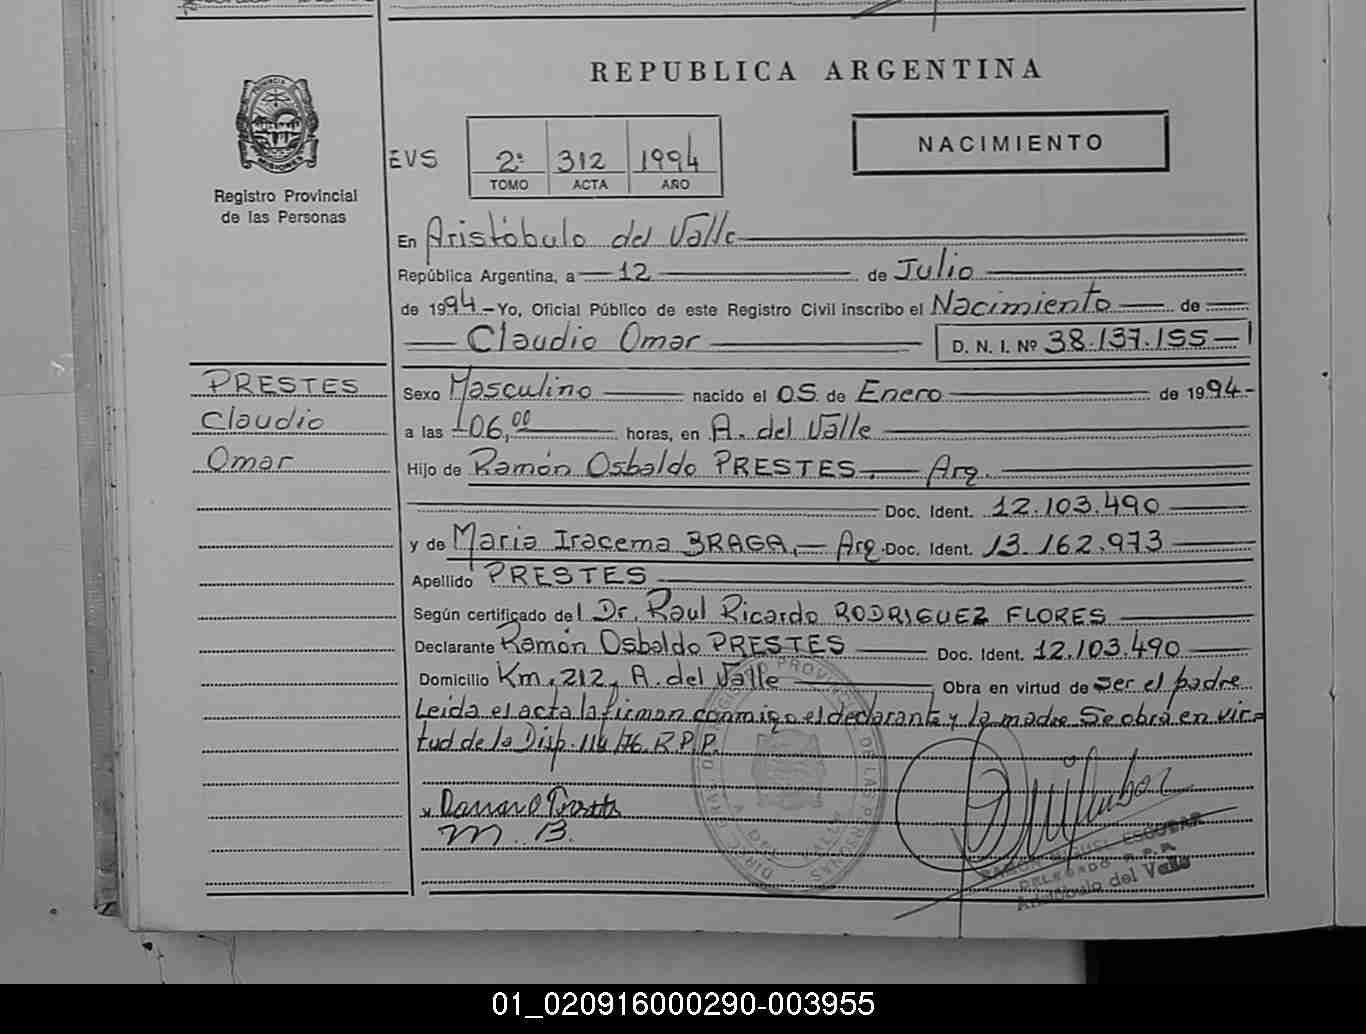 REPUBLICA ARGENTINA
PROVINCIA
MISIONES
Registro Provincial
de las Personas
EVS
2º 312 1994
TOMO ACTA AÑO
NACIMIENTO
En Aristóbulo del Valle
República Argentina, a 12 de Julio
de 1994 - Yo, Oficial Público de este Registro Civil inscribo el Nacimiento de
Claudio Omar D. N. I. Nº 38.137.155
PRESTES
Claudio
Omar
Sexo Masculino nacido el 05 de Enero de 1994-
a las 06,00 horas, en A. del Valle
Hijo de Ramón Osbaldo PRESTES. Arg.
Doc. Ident. 12.103.490
y de Maria Iracema BRAGA, Arg. Doc. Ident. 13.162.973
Apellido PRESTES
Según certificado del Dr. Raul Ricardo RODRIGUEZ FLORES
Declarante Ramón Osbaldo PRESTES Doc. Ident. 12.103.490
Domicilio Km. 212, A. del Valle Obra en virtud de ser el padre
Leida el acta la firman conmigo el declarante y la madre Se obra en vir-
tud de la Disp. 114/76. R.P.P.
M. B.
ESCOBAR
DELEGADO R.P.P.
Aristóbulo del Valle
01_020916000290-003955